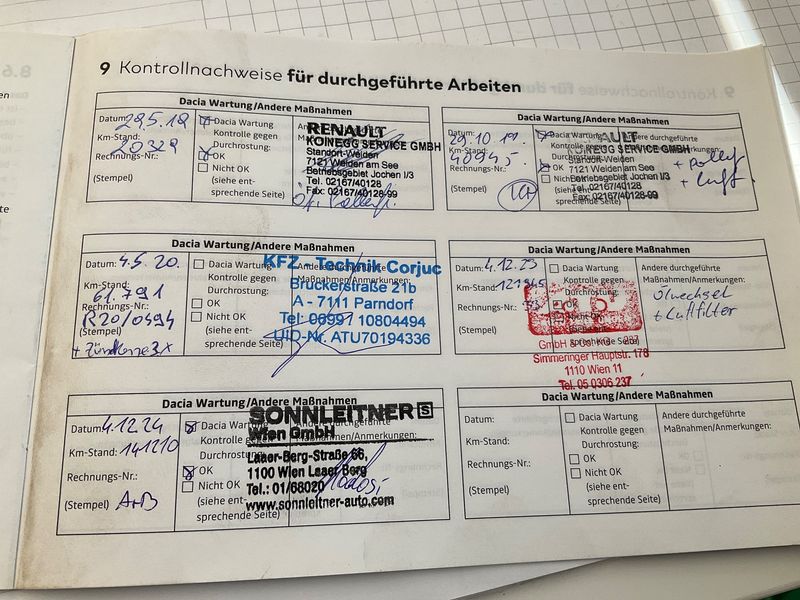 9 Kontrollnachweise für durchgeführte Arbeiten
Dacia Wartung/Andere Maßnahmen
Datum: 29.5.19
Km-Stand: 20329
Rechnungs-Nr.:
(Stempel)
Dacia Wartung
Kontrolle gegen
Durchrostung:
OK
Nicht OK
(siehe ent-
sprechende Seite)
RENAULT
KOINEGG SERVICE GMBH
Standort-Weiden
7121 Weiden am See
Betriebsgebiet Jochen I/3
Tel. 02167/40128
Fax: 02167/40128-99
Dacia Wartung/Andere Maßnahmen
Datum: 29.10.19.
Km-Stand: 40945-
Rechnungs-Nr.:
(Stempel)
Dacia Wartung
Kontrolle gegen
Durchrostung:
OK
Nicht
(siehe
sprechende Seite)
Andere durchgeführte
AULT
KOINEGG SERVICE GMBH
Standort-Weiden
7121 Weiden am See
Betriebsgebiet Jochen I/3
Tel. 02167/40128
Fax 02167/40128-99
+ Luft.
Dacia Wartung/Andere Maßnahmen
Datum: 4.5.20.
Km-Stand: 61.791
Rechnungs-Nr.: R20/0494
(Stempel)
Dacia Wartung
Kontrolle gegen
Durchrostung:
OK
Nicht OK
(siehe ent-
sprechende Seite)
KFZ - Technik Corjuc
Bruckerstraße 21b
A - 7111 Parndorf
Tel: 06991 10804494
UID-Nr. ATU70194336
Dacia Wartung/Andere Maßnahmen
Datum: 4.12.23
Km-Stand:
Rechnungs-Nr.:
(Stempel)
Dacia Wartung
Kontrolle gegen
Durchrostung:
OK
Andere durchgeführte
Maßnahmen/Anmerkungen:
Ölwechsel
+ Luftfilter
GmbH & Co KG - 237
Simmeringer Hauptstr. 178
1110 Wien 11
Tel. 05 0306 237
Dacia Wartung/Andere Maßnahmen
Datum: 4.12.24
Km-Stand: 141210
Rechnungs-Nr.:
(Stempel) A+B
Dacia Wartung
Kontrolle gegen
Durchrostung:
OK
Nicht OK
(siehe ent-
sprechende Seite)
SONNLEITNER S
Wien GmbH
Laaer-Berg-Straße 66,
1100 Wien Laaer Berg
Tel.: 01/68020
www.sonnleitner-auto.com
Dacia Wartung/Andere Maßnahmen
Datum:
Km-Stand:
Rechnungs-Nr.:
(Stempel)
Dacia Wartung
Kontrolle gegen
Durchrostung:
OK
Nicht OK
(siehe ent-
sprechende Seite)
Andere durchgeführte
Maßnahmen/Anmerkungen: